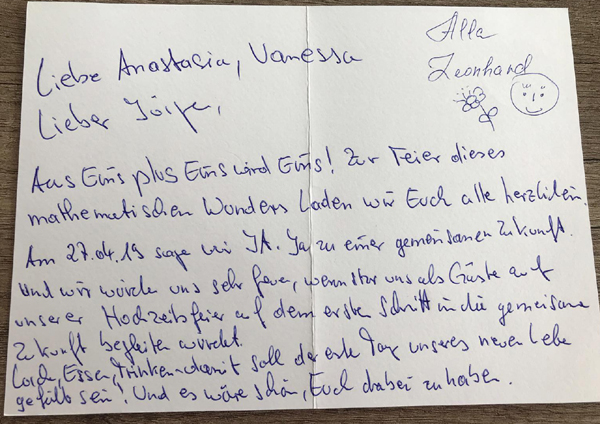 Alla
Leonhard
Liebe Anastasia, Vanessa
Lieber Jörge,
Aus Eins plus Eins wird Eins! Zur Feier dieses
mathematischen Wunders Laden wir Euch alle herzlich ein.
Am 27.04.19 sagen wir JA. Ja zu einer gemeinsamen Zukunft.
Und wir würde uns sehr freuen, wenn Ihr uns als Gäste auf
unserer Hochzeitsfeier auf dem ersten Schritt in die gemeisame
Zukunft begleiten würdet.
Lachen, Essen, Trinken - damit soll der erste Tag unseres neuen Lebe
gefüllt sein! Und es wäre schön, Euch dabei zu haben.